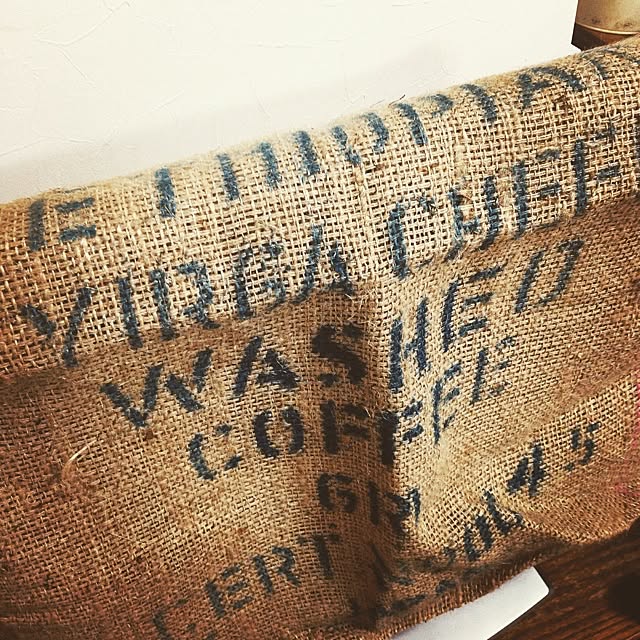 ETHIOPIAN
YIRGACHEFFE
WASHED
COFFEE
GR
CERT